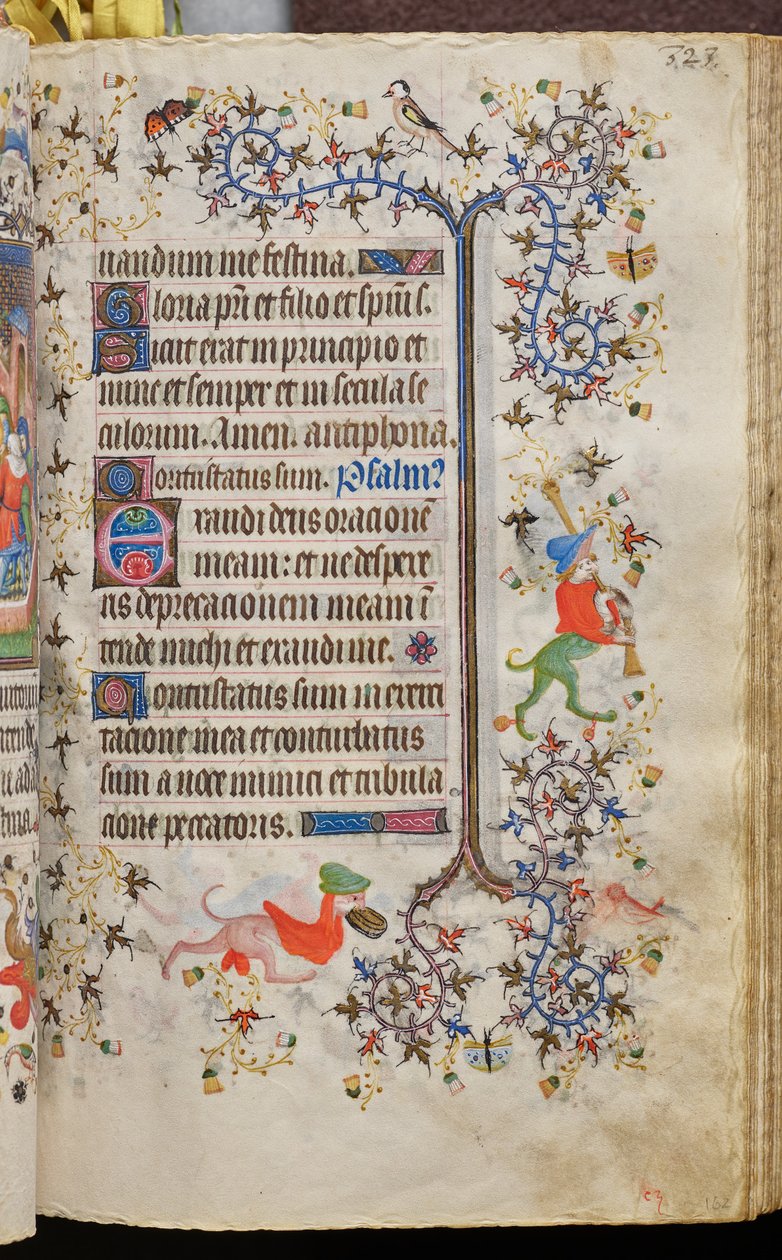 323.
uandum me festina.
Gloria pri et filio et spiu s.
Sicut erat in principio et
nunc et semper et in secula se
culorum. Amen. antiphona.
Contristatus sum. Psalm9
Exaudi deus oracionē
meam: et ne despexe
ris deprecacionem meam ī
tende michi et exaudi me.
Contristatus sum in exerci
tacione mea et conturbatus
sum a uoce inimici et tribula
cione peccatoris.
162